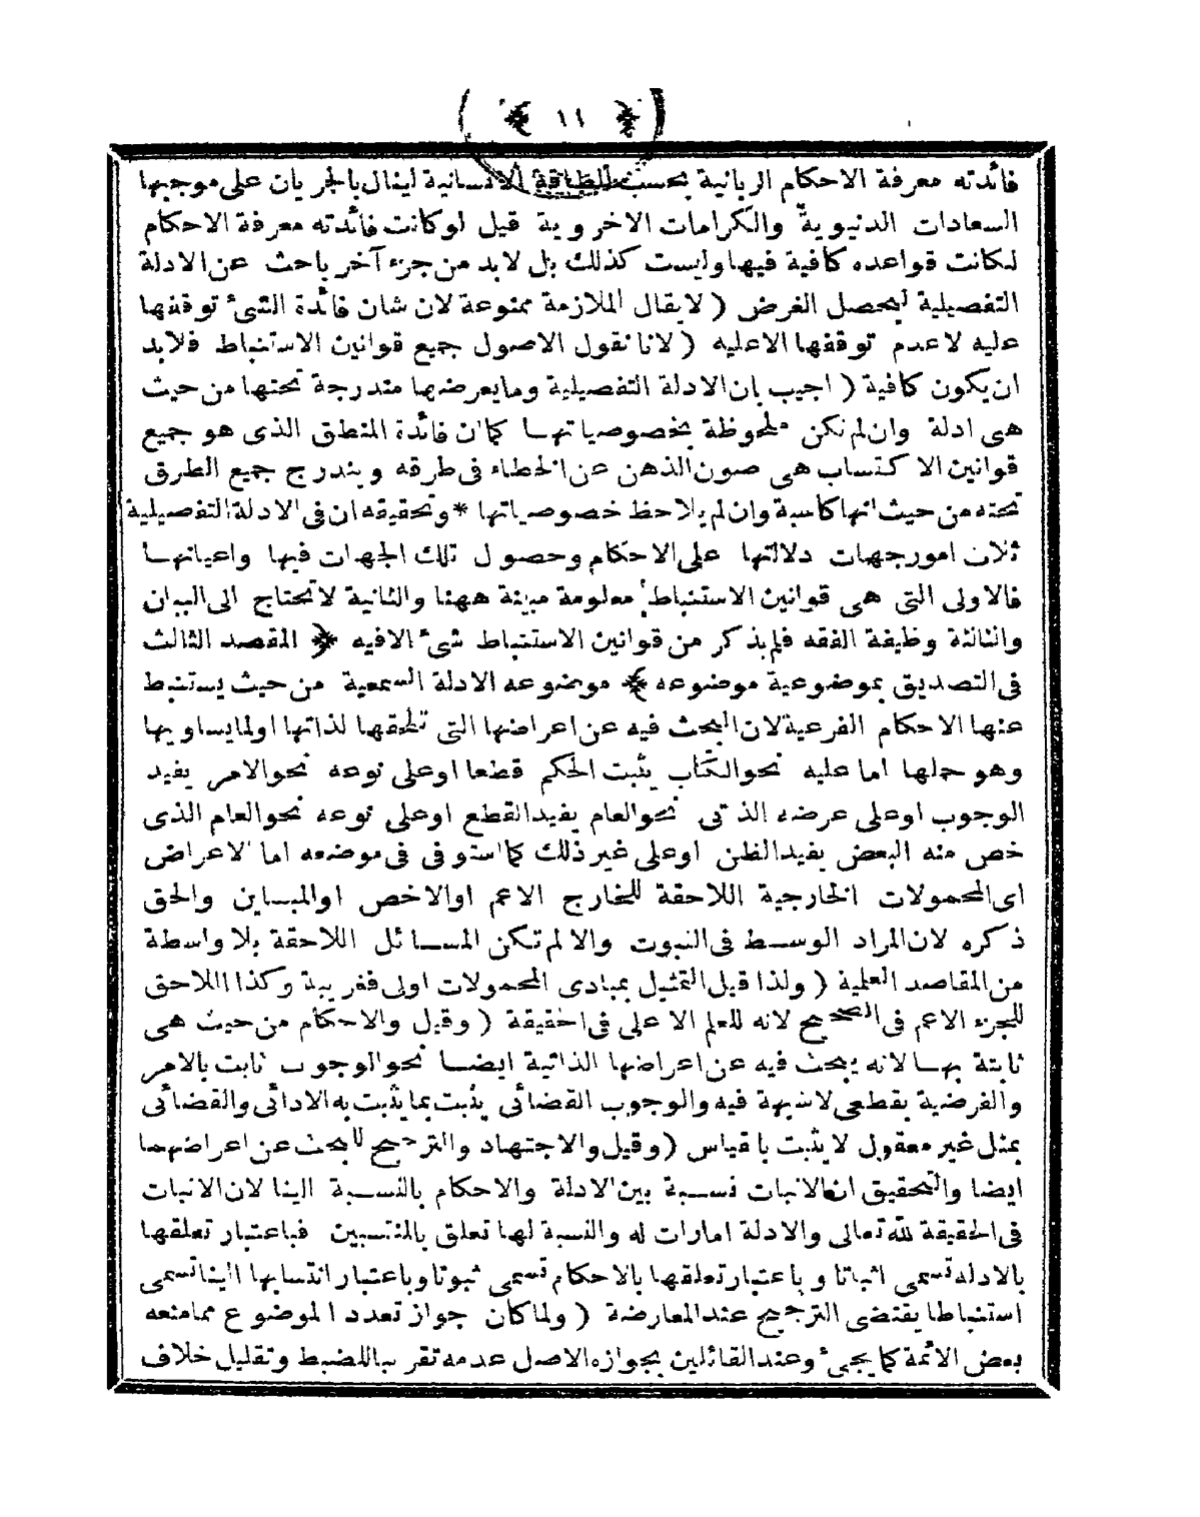 ﴿ ١١ ﴾
فائدته معرفة الاحكام الربانية بحسب الطاقة الانسانية لينال بالجريان على موجبها
السعادات الدنيوية والكرامات الاخروية قيل لوكانت فائدته معرفة الاحكام
لكانت قواعده كافية فيها وليست كذلك بل لابد من جزء آخر باحث عن الادلة
التفصيلية ليحصل الغرض ( لايقال الملازمة ممنوعة لان شان فائدة الشئ توقفها
عليه لاعدم توقفها الاعليه ( لانا نقول الاصول جميع قوانين الاستنباط فلابد
ان يكون كافية ( اجيب بان الادلة التفصيلية ومايعرضها مندرجة تحتها من حيث
هى ادلة وان لم تكن ملحوظة بخصوصياتها كما ان فائدة المنطق الذى هو جميع
قوانين الاكتساب هى صون الذهن عن الخطاء فى طرقه ويندرج جميع الطرق
تحته من حيث انها كاسبة وان لم يلاحظ خصوصياتها * وتحقيقه ان فى الادلة التفصيلية
ثلاث امور جهات دلالتها على الاحكام وحصول تلك الجهات فيها واعيانها
فالاولى التى هى قوانين الاستنباط معلومة مبينة ههنا والثانية لاتحتاج الى البيان
والثالثة وظيفة الفقه فلم يذكر من قوانين الاستنباط شئ الافيه ﴿ المقصد الثالث
فى التصديق بموضوعية موضوعه ﴾ موضوعه الادلة السمعية من حيث يستنبط
عنها الاحكام الفرعية لان البحث فيه عن اعراضها التى تلحقها لذاتها اولمايساويها
وهو حملها اما عليه نحو الكتاب يثبت الحكم قطعا اوعلى نوعه نحو الامر يفيد
الوجوب اوعلى عرضه الذاتى نحو العام يفيد القطع اوعلى نوعه نحو العام الذى
خص منه البعض يفيد الظن اوعلى غير ذلك كما استوفى فى موضعه اما الاعراض
اى المحمولات الخارجية اللاحقة للخارج الاعم اوالاخص اوالمباين والحق
ذكره لان المراد الوسط فى الثبوت والا لم تكن المسائل اللاحقة بلا واسطة
من المقاصد العلمية ( ولذا قيل التمثيل بمبادى المحمولات اولى فغريبة وكذا اللاحق
للجزء الاعم فى الصحيح لانه للعلم الاعلى فى الحقيقة ( وقيل والاحكام من حيث هى
ثابتة بها لانه يبحث فيه عن اعراضها الذاتية ايضا نحو الوجوب ثابت بالامر
والفرضية بقطعى لاشبهة فيه والوجوب القضائى يثبت بما يثبت به الادائى والقضائى
بمثل غير معقول لايثبت بالقياس ( وقيل والاجتهاد والترجيح للبحث عن اعراضهما
ايضا والتحقيق ان الاثبات نسبة بين الادلة والاحكام بالنسبة الينا لان الاثبات
فى الحقيقة لله تعالى والادلة امارات له والنسبة لها تعلق بالمنتسبين فباعتبار تعلقها
بالادله تسمى اثباتا وباعتبار تعلقها بالاحكام تسمى ثبوتا وباعتبار انتسابها الينا تسمى
استنباطا يقتضى الترجيح عند المعارضة ( ولماكان جواز تعدد الموضوع ممامنعه
بعض الائمة كما يجئ وعند القائلين بجوازه الاصل عدمه تقريبا للضبط وتقليل خلاف